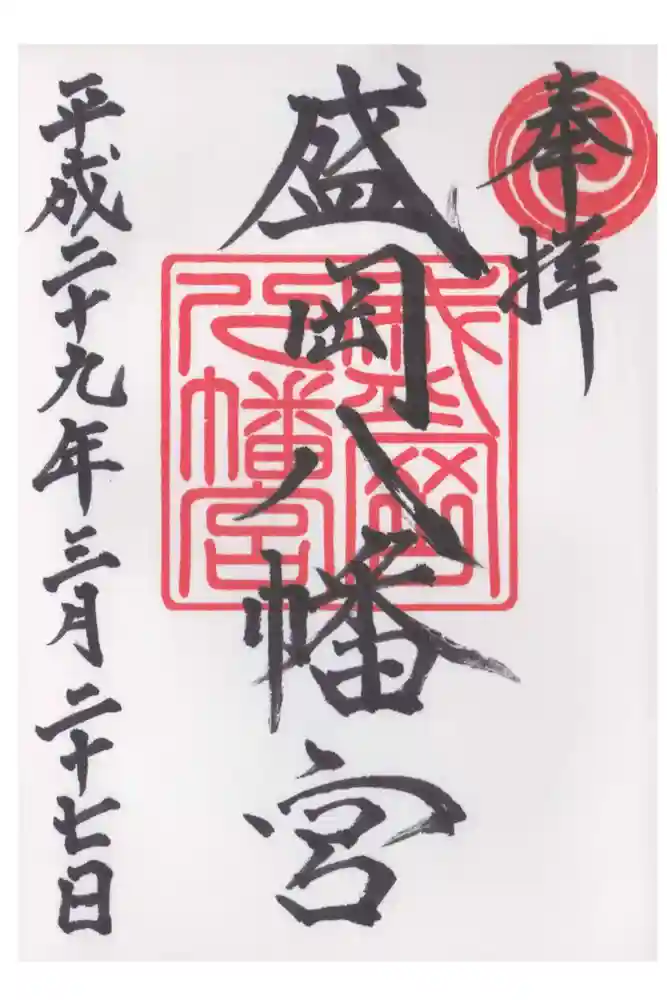 奉拝
盛岡八幡宮
盛岡八幡宮
平成二十九年三月二十七日